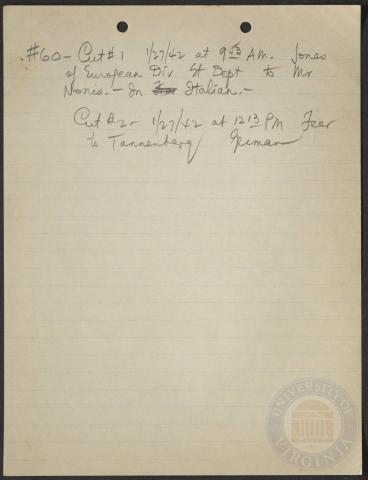 #60 - Cut #1 1/27/42 at 9 53 A.M. Jones
of European Div St Dept to Mr
Nonis. - In Italian. -
Cut #2 - 1/27/42 at 12 13 PM Feer
to Tannenberg German
UNIVERSITY OF VIRGINIA